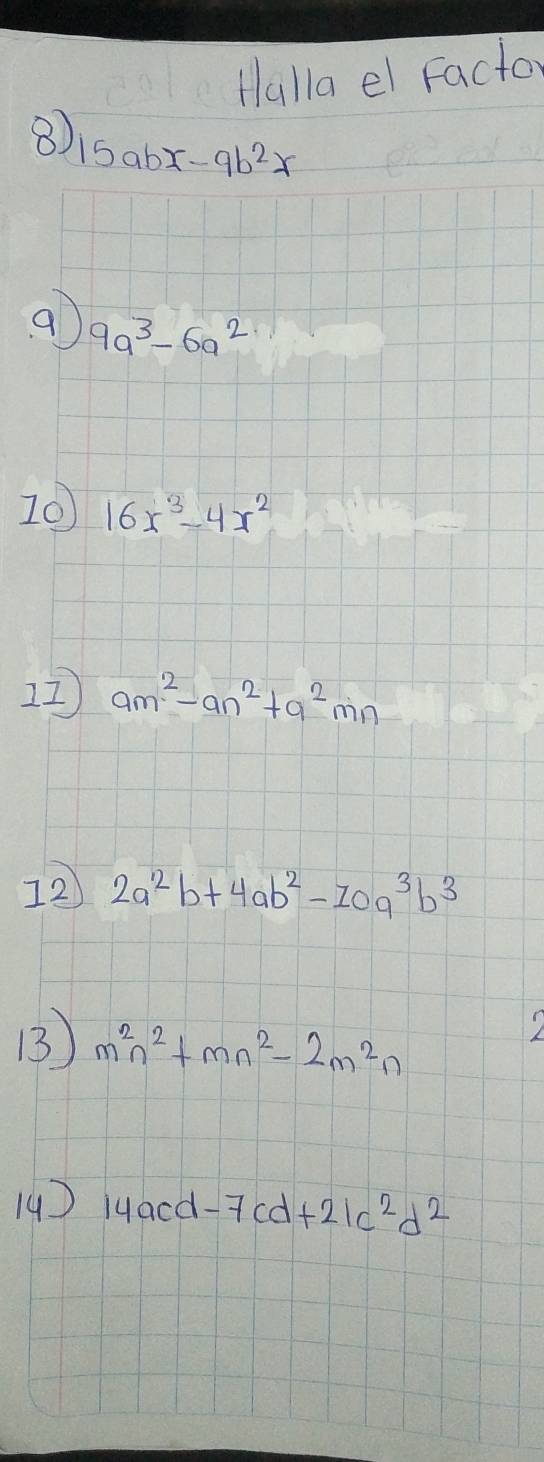 Halla el Facto
8) 15abx-9b²x
9) 9a³-6a²
10) 16x³-4x²
11) am²-an²+a²mn
12) 2a²b+4ab²-10a³b³
13) m²n²+mn²-2m²n
2
14) 14acd-7cd+21c²d²